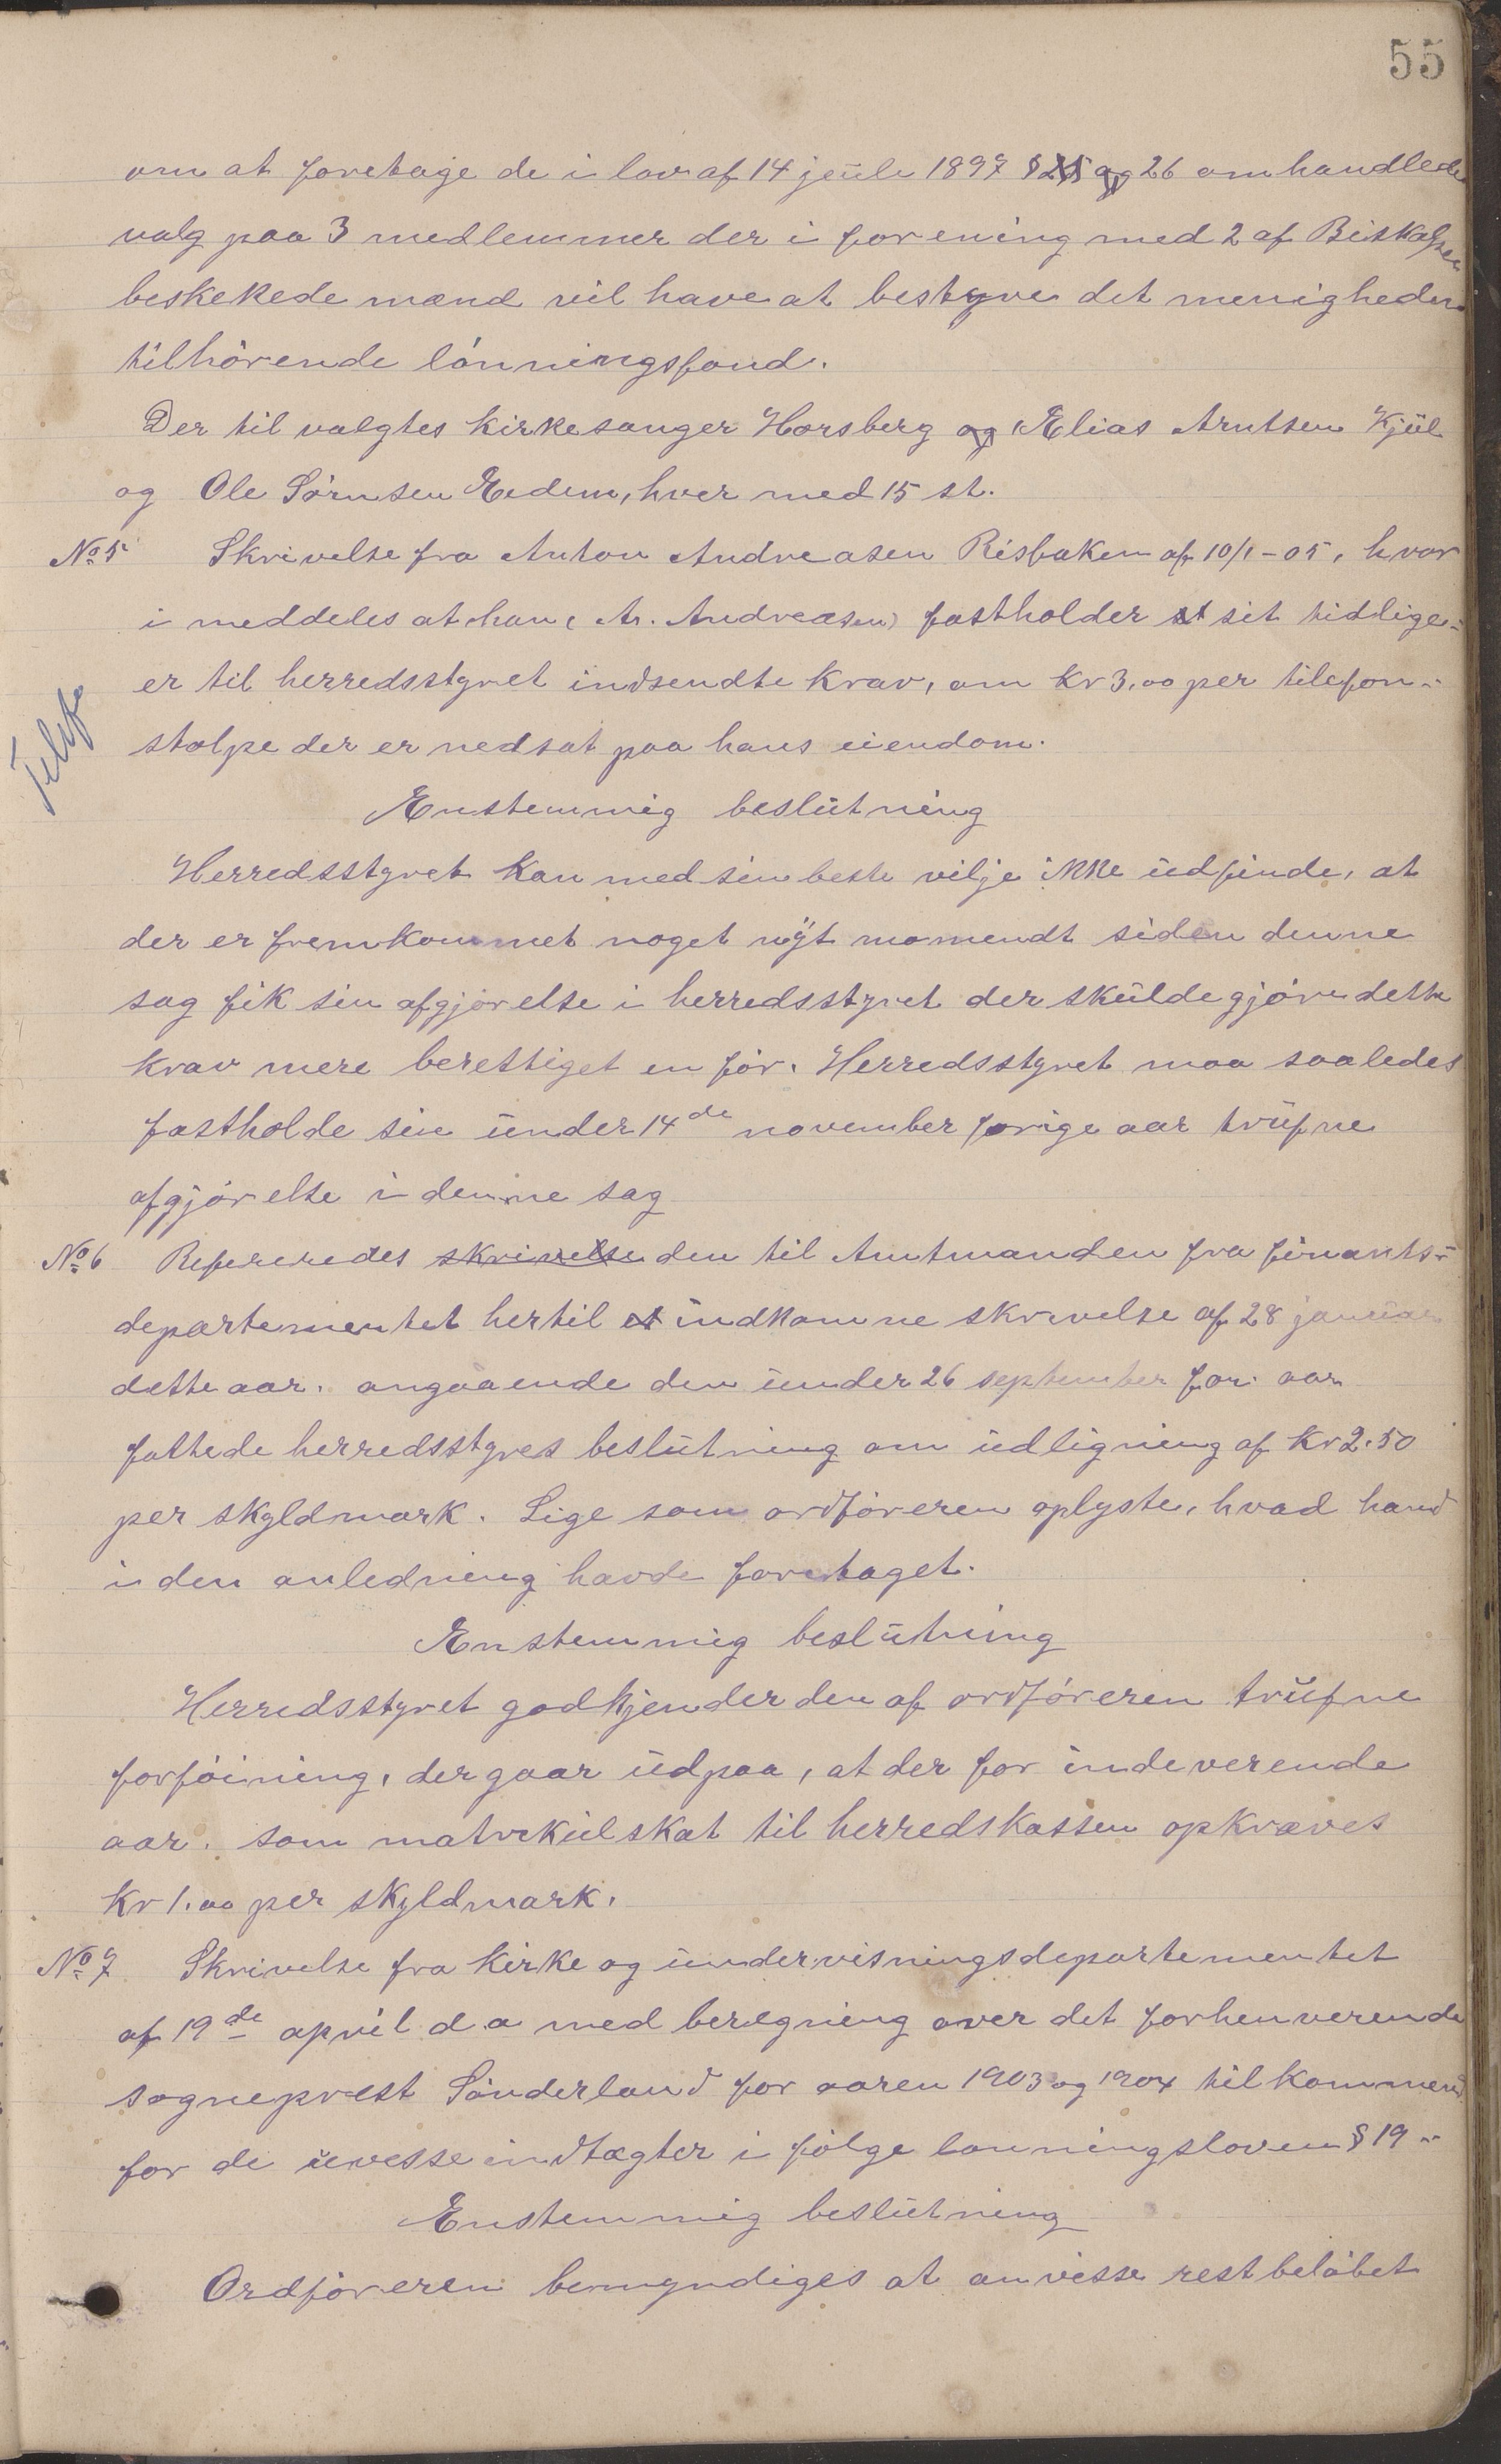 55
om at foretage de i lov af 14 juli 1897 § 26 omhandlede
valg paa 3 medlemmer der i forening med 2 af Biskopen
beskekede mænd vil have at bestyre det menigheden
tilhörende lönningsfond.
Der til valgtes kirkesanger Horsberg og Elias Arntsen Kjul
og Ole Sörnsen Eedem, hver med 15 st.
No 5 Skrivelse fra Anton Andreasen Risbaken af 10/1-05, hvor
i meddeles at han (An. Andreasen) fastholder at sit tidlige-
er til herredsstyret indsendte krav, om kr 3,00 per telefon-
Telef
stolpe der er nedsat paa hans eiendom.
Enstemmig beslutning
Herredsstyret kan med sin beste vilje ikke udfinde, at
der er fremkommet noget nyt momendt siden denne
sag fik sin afgjörelse i herredsstyret der skulde gjöre dette
krav mere berettiget en för. Herredsstyret maa saaledes
fastholde sin under 14de november forige aar trufne
afgjörelse i denne sag
No 6 Refereredes skrivelse den til Amtmanden fra finants-
departementet hertil et indkomne skrivelse af 28 januar
dette aar. angaaende den under 26 september for. aar
fattede herredsstyres beslutning om udligning af kr 2.50
per skyldmark. Lige som ordföreren oplyste, hvad hand
i den anledning havde foretaget.
Enstemmig beslutning
Herredsstyret godkjender den af ordföreren trufne
forföining, der gaar ud paa, at der for indeverende
aar. som matrikulskat til herredskassen opkræves
kr 1.00 per skyldmark.
No 7 Skrivelse fra kirke og undervisningsdepartementet
af 19de april d a med beregning over det forhenverende
sogneprest Sönderland for aaren 1903 og 1904 tilkommend
for de uvesse indtægter i fölge lonningsloven § 19-
Enstemmig beslutning
Ordföreren bemyndiges at anvisse restbelöbet